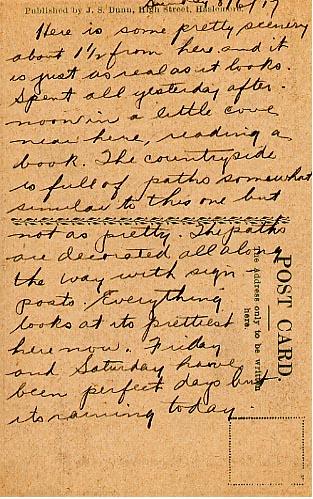 Published by J. S. Dunn, High Street, Haslemere
Sunday
Here is some pretty scenery
about 1½ from here and it
is just as real as it looks.
Spent all yesterday after-
noon in a little cove
near here, reading a
book. The countryside
is full of paths somewhat
similar to this one but
not as pretty. The paths
are decorated all along
the way with sign
posts. Everything
looks at its prettiest
here now. Friday
and Saturday have
been perfect days but
its raining today.
POST CARD.
The Address only to be written
here.